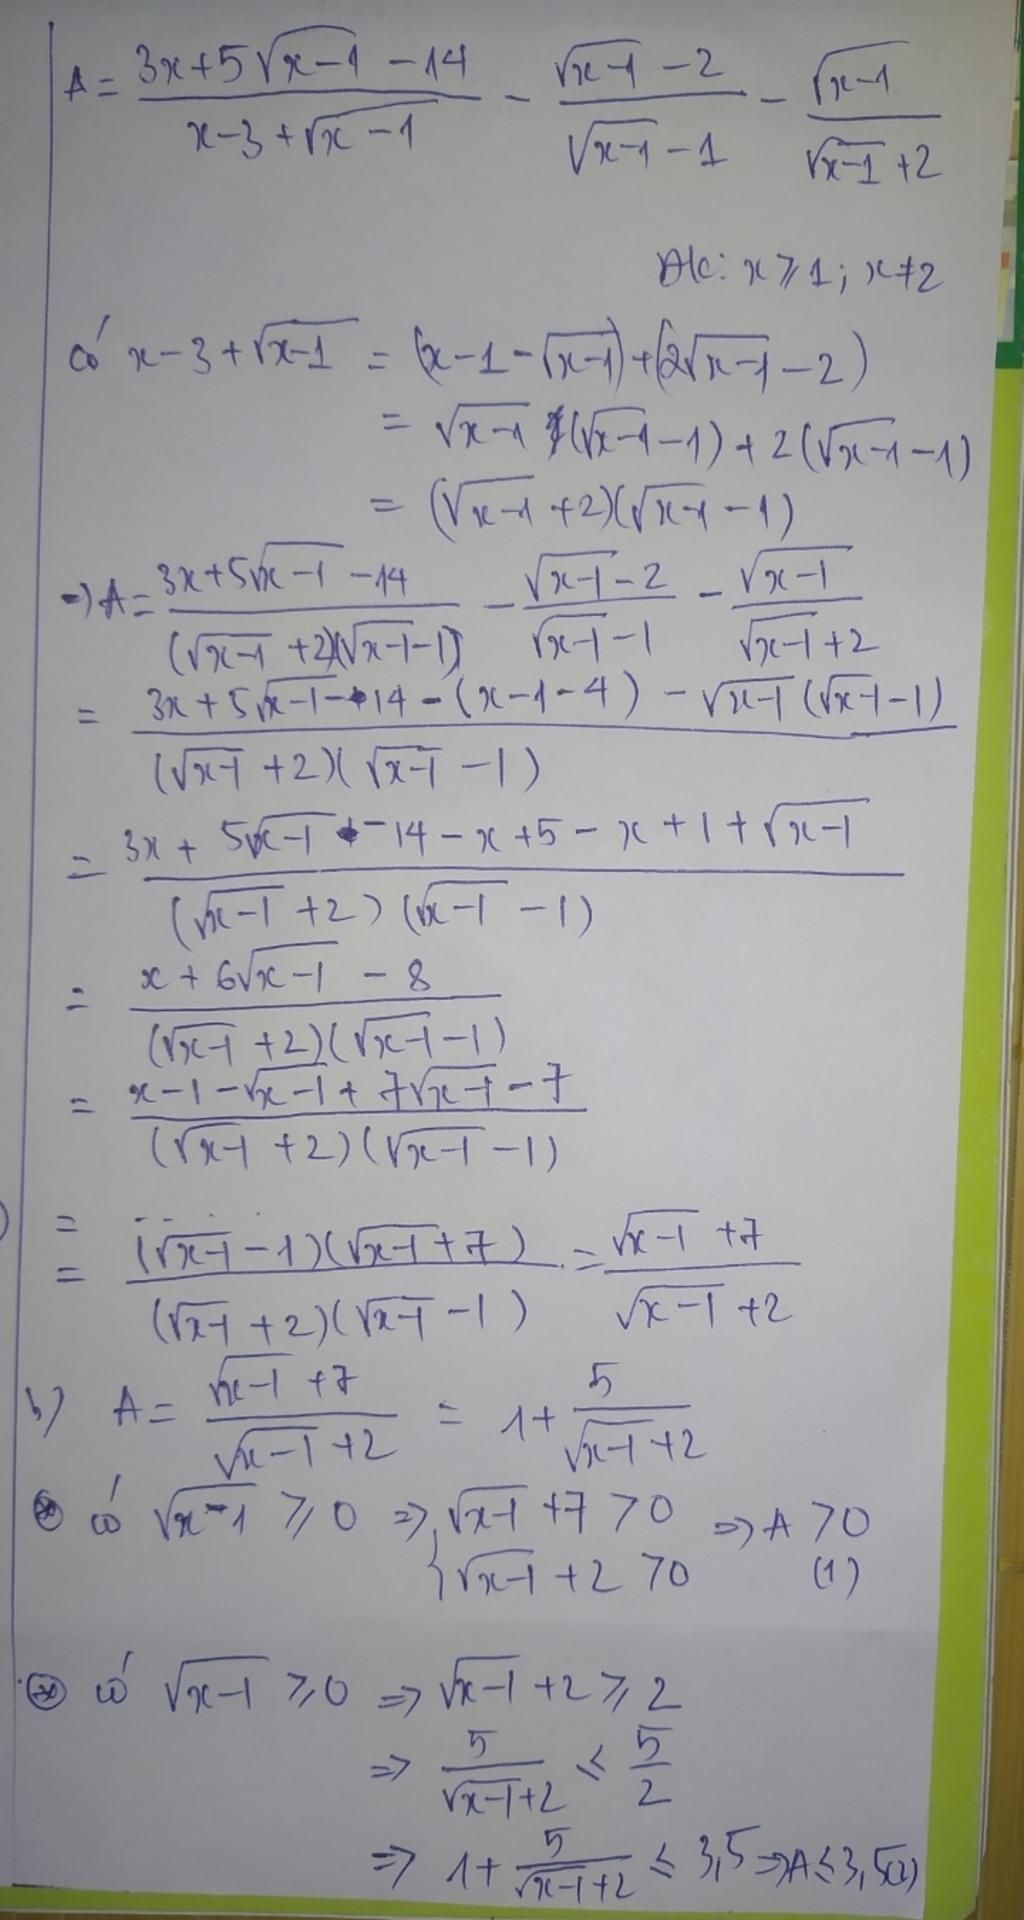 A = (3x+5√(x-1) -14)/(x-3+√(x-1)) - (√(x-1) -2)/(√(x-1) -1) - √(x-1)/(√(x-1) +2)
Đk: x ⩾ 1; x ≠ 2
có x-3+√(x-1) = (x-1-√(x-1))+(2√(x-1) -2)
= √(x-1) (√(x-1) -1) + 2(√(x-1) -1)
= (√(x-1) +2)(√(x-1) -1)
=> A = (3x+5√(x-1) -14)/((√(x-1) +2)(√(x-1) -1)) - (√(x-1) -2)/(√(x-1) -1) - √(x-1)/(√(x-1) +2)
= (3x+5√(x-1) -14-(x-1-4) -√(x-1) (√(x-1) -1))/((√(x-1) +2)(√(x-1) -1))
= (3x+5√(x-1) -14-x+5-x+1+√(x-1))/((√(x-1) +2)(√(x-1) -1))
= (x+6√(x-1) -8)/((√(x-1) +2)(√(x-1) -1))
= (x-1-√(x-1) +7√(x-1) -7)/((√(x-1) +2)(√(x-1) -1))
=
= ((√(x-1) -1)(√(x-1) +7))/((√(x-1) +2)(√(x-1) -1)) = (√(x-1) +7)/(√(x-1) +2)
b) A = (√(x-1) +7)/(√(x-1) +2) = 1+ 5/(√(x-1) +2)
có √(x-1) ⩾ 0 => { √(x-1) +7 > 0 => A > 0
√(x-1) +2 > 0 (1)
có √(x-1) ⩾ 0 => √(x-1) +2 ⩾ 2
=> 5/(√(x-1) +2) ⩽ 5/2
=> 1+ 5/(√(x-1) +2) ⩽ 3,5 => A ⩽ 3,5 (2)